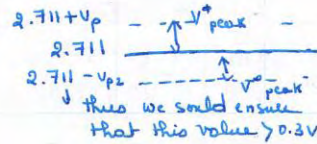 2.711 + Vp - - - V⁺peak -
2.711
2.711 - Vp2 - - - - - - V⁻peak
thus we sould ensure
that this value > 0.3V